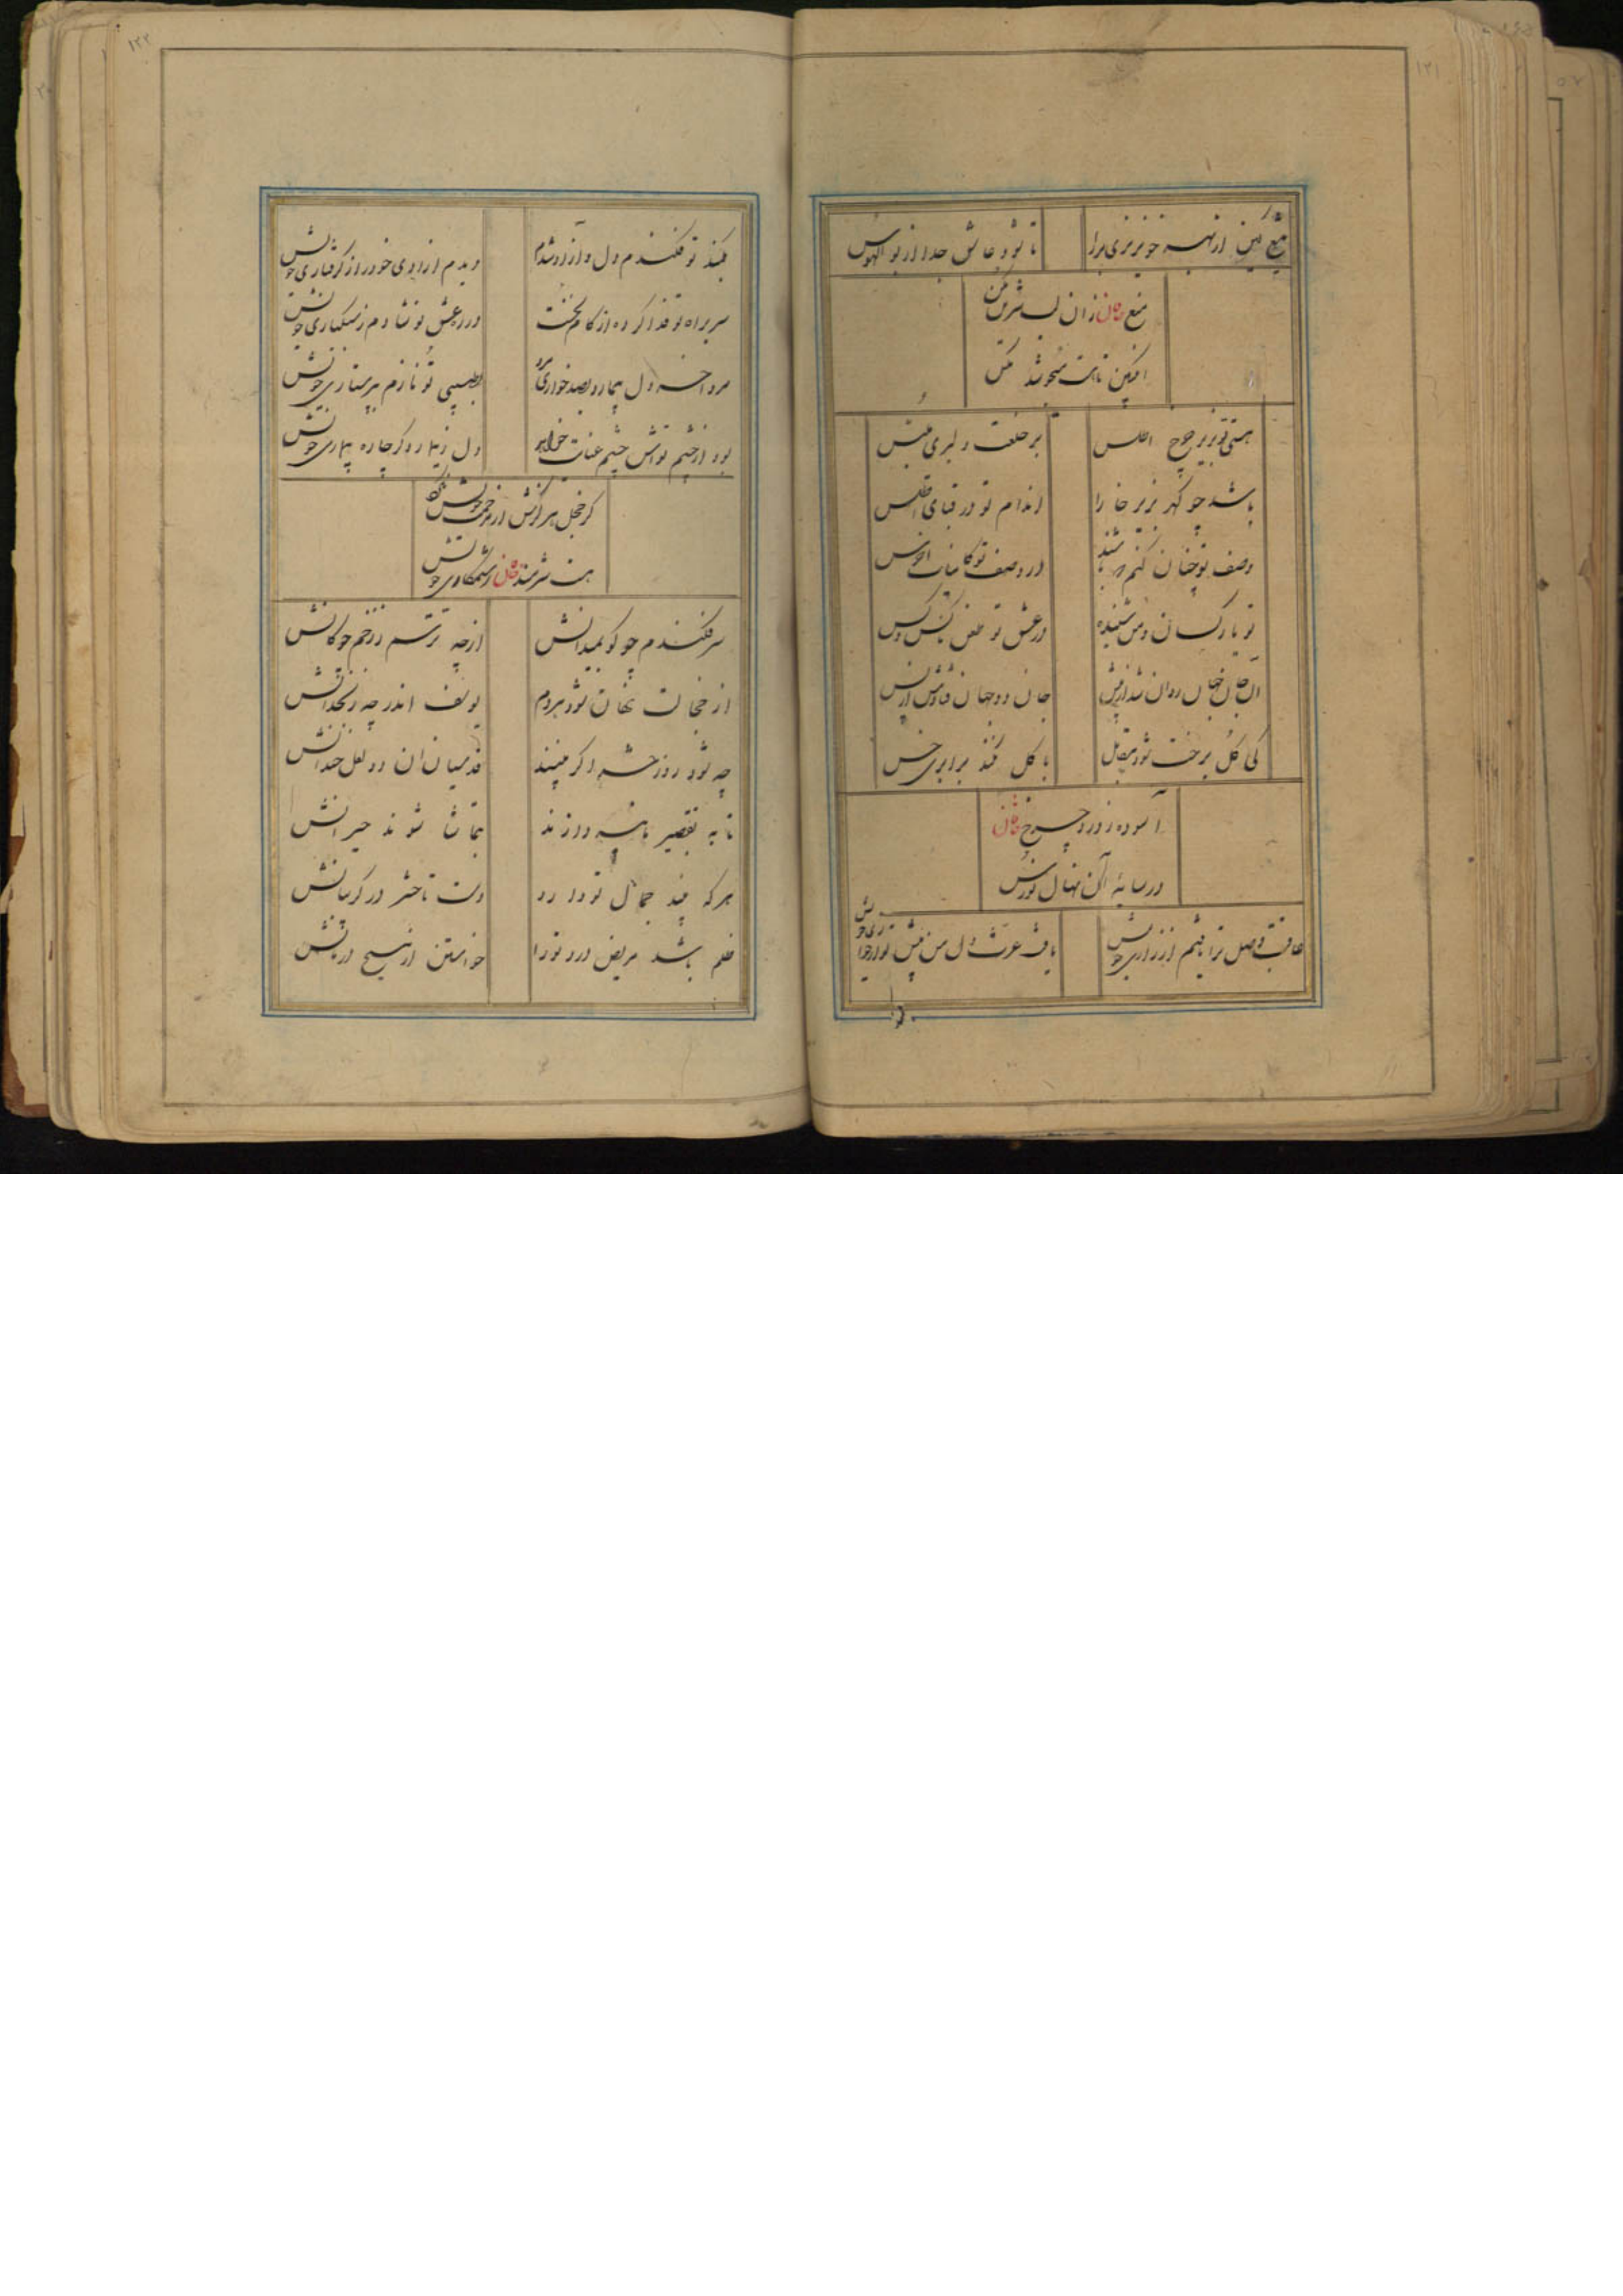 تیغ کین از بهر خونریزی برا
تا شود عاشق جدا از بوالهوس
منع خاقان زان لب شیرین مکن
انگبین تا هست میجوشد مکس
هستی تو بزیر چرخ اطلس
بر خلعت دلبری ملبس
باشد چو گهر بزیر خارا
اندام تو در قبای اطلس
وصف تو چنان کنم که باشند
در وصف تو کاینات اخرس
تو با دگران و من شنیده
در عشق تو طعن ناکس و کس
آن جان جهان روان شد از پیش
جان دو جهان فتادش از پس
کی گل برخت شود مقابل
با گل نکند برابری خس
آسوده ز دور چرخ خاقان
در سایه آن نهال نورس
عاقبت وصل ترا یافتم از زاری خویش
یافت عزت دل من پیش تو از خواری خویش
۱۲۱
بکمند تو فکندم دل و آزاد شدم
دیدم آزادی خود را ز گرفتاری خویش
سر براه تو فدا کرده ام از گام نخست
در ره عشق تو شادم ز سبکباری خویش
مرد آخر دل بیمار و بصد خواری مرد
بطبیبی تو نازم بپرستاری خویش
بود از چشم تواش چشم عنایت خواهر
دل ز بیمار دگر چاره بیماری خویش
گر خجل هر کسش از مرحمت خویش کند
هست شرمنده خاقان ز ستمکاری خویش
سر فکندم چو گو بمیدانش
از چه ترسم ز زخم چوکانش
از خجالت نهان شود هر دم
یوسف اندر چه زنخدانش
چه شود روز حشر اگر بینند
قدسیان آن دو لعل خندانش
تا به تقصیر ما نپردازند
بتماشا شوند حیرانش
هر که بیند جمال تو دارد
دست تا حشر در گریبانش
ظلم باشد مریض درد تو را
خواستن از مسیح درمانش
۱۲۲